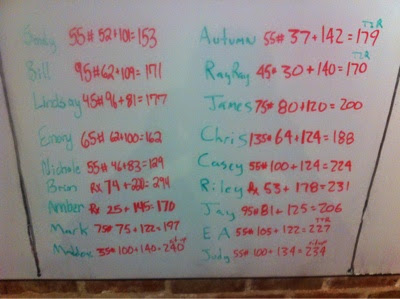 55# 52+101=153
Bill 95# 62+109=171
Lindsay 45# 96+81=177
Emory 65# 62+100=162
Nichole 55# 46+83=129
Brian Rx 74+220=294
Amber Rx 25+145=170
Mark 75# 75+122=197
35# 100+140=240
Autumn 55# 37+142=179
RayRay 45# 30+140=170
James 75# 80+120=200
Chris 135# 64+124=188
Casey 55# 100+124=224
Riley Rx 53+178=231
Jay 95# 81+125=206
EA 55# 105+122=227
Judy 55# 100+134=234